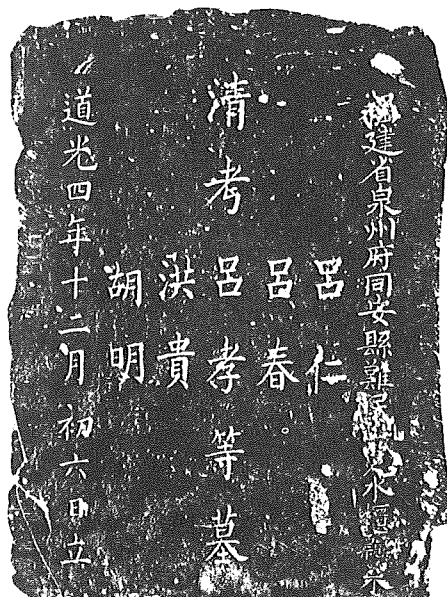 福建省泉州府同安縣難民風水
呂仁
呂春
清考呂孝等墓
洪貴
胡明
道光四年十二月初六日立